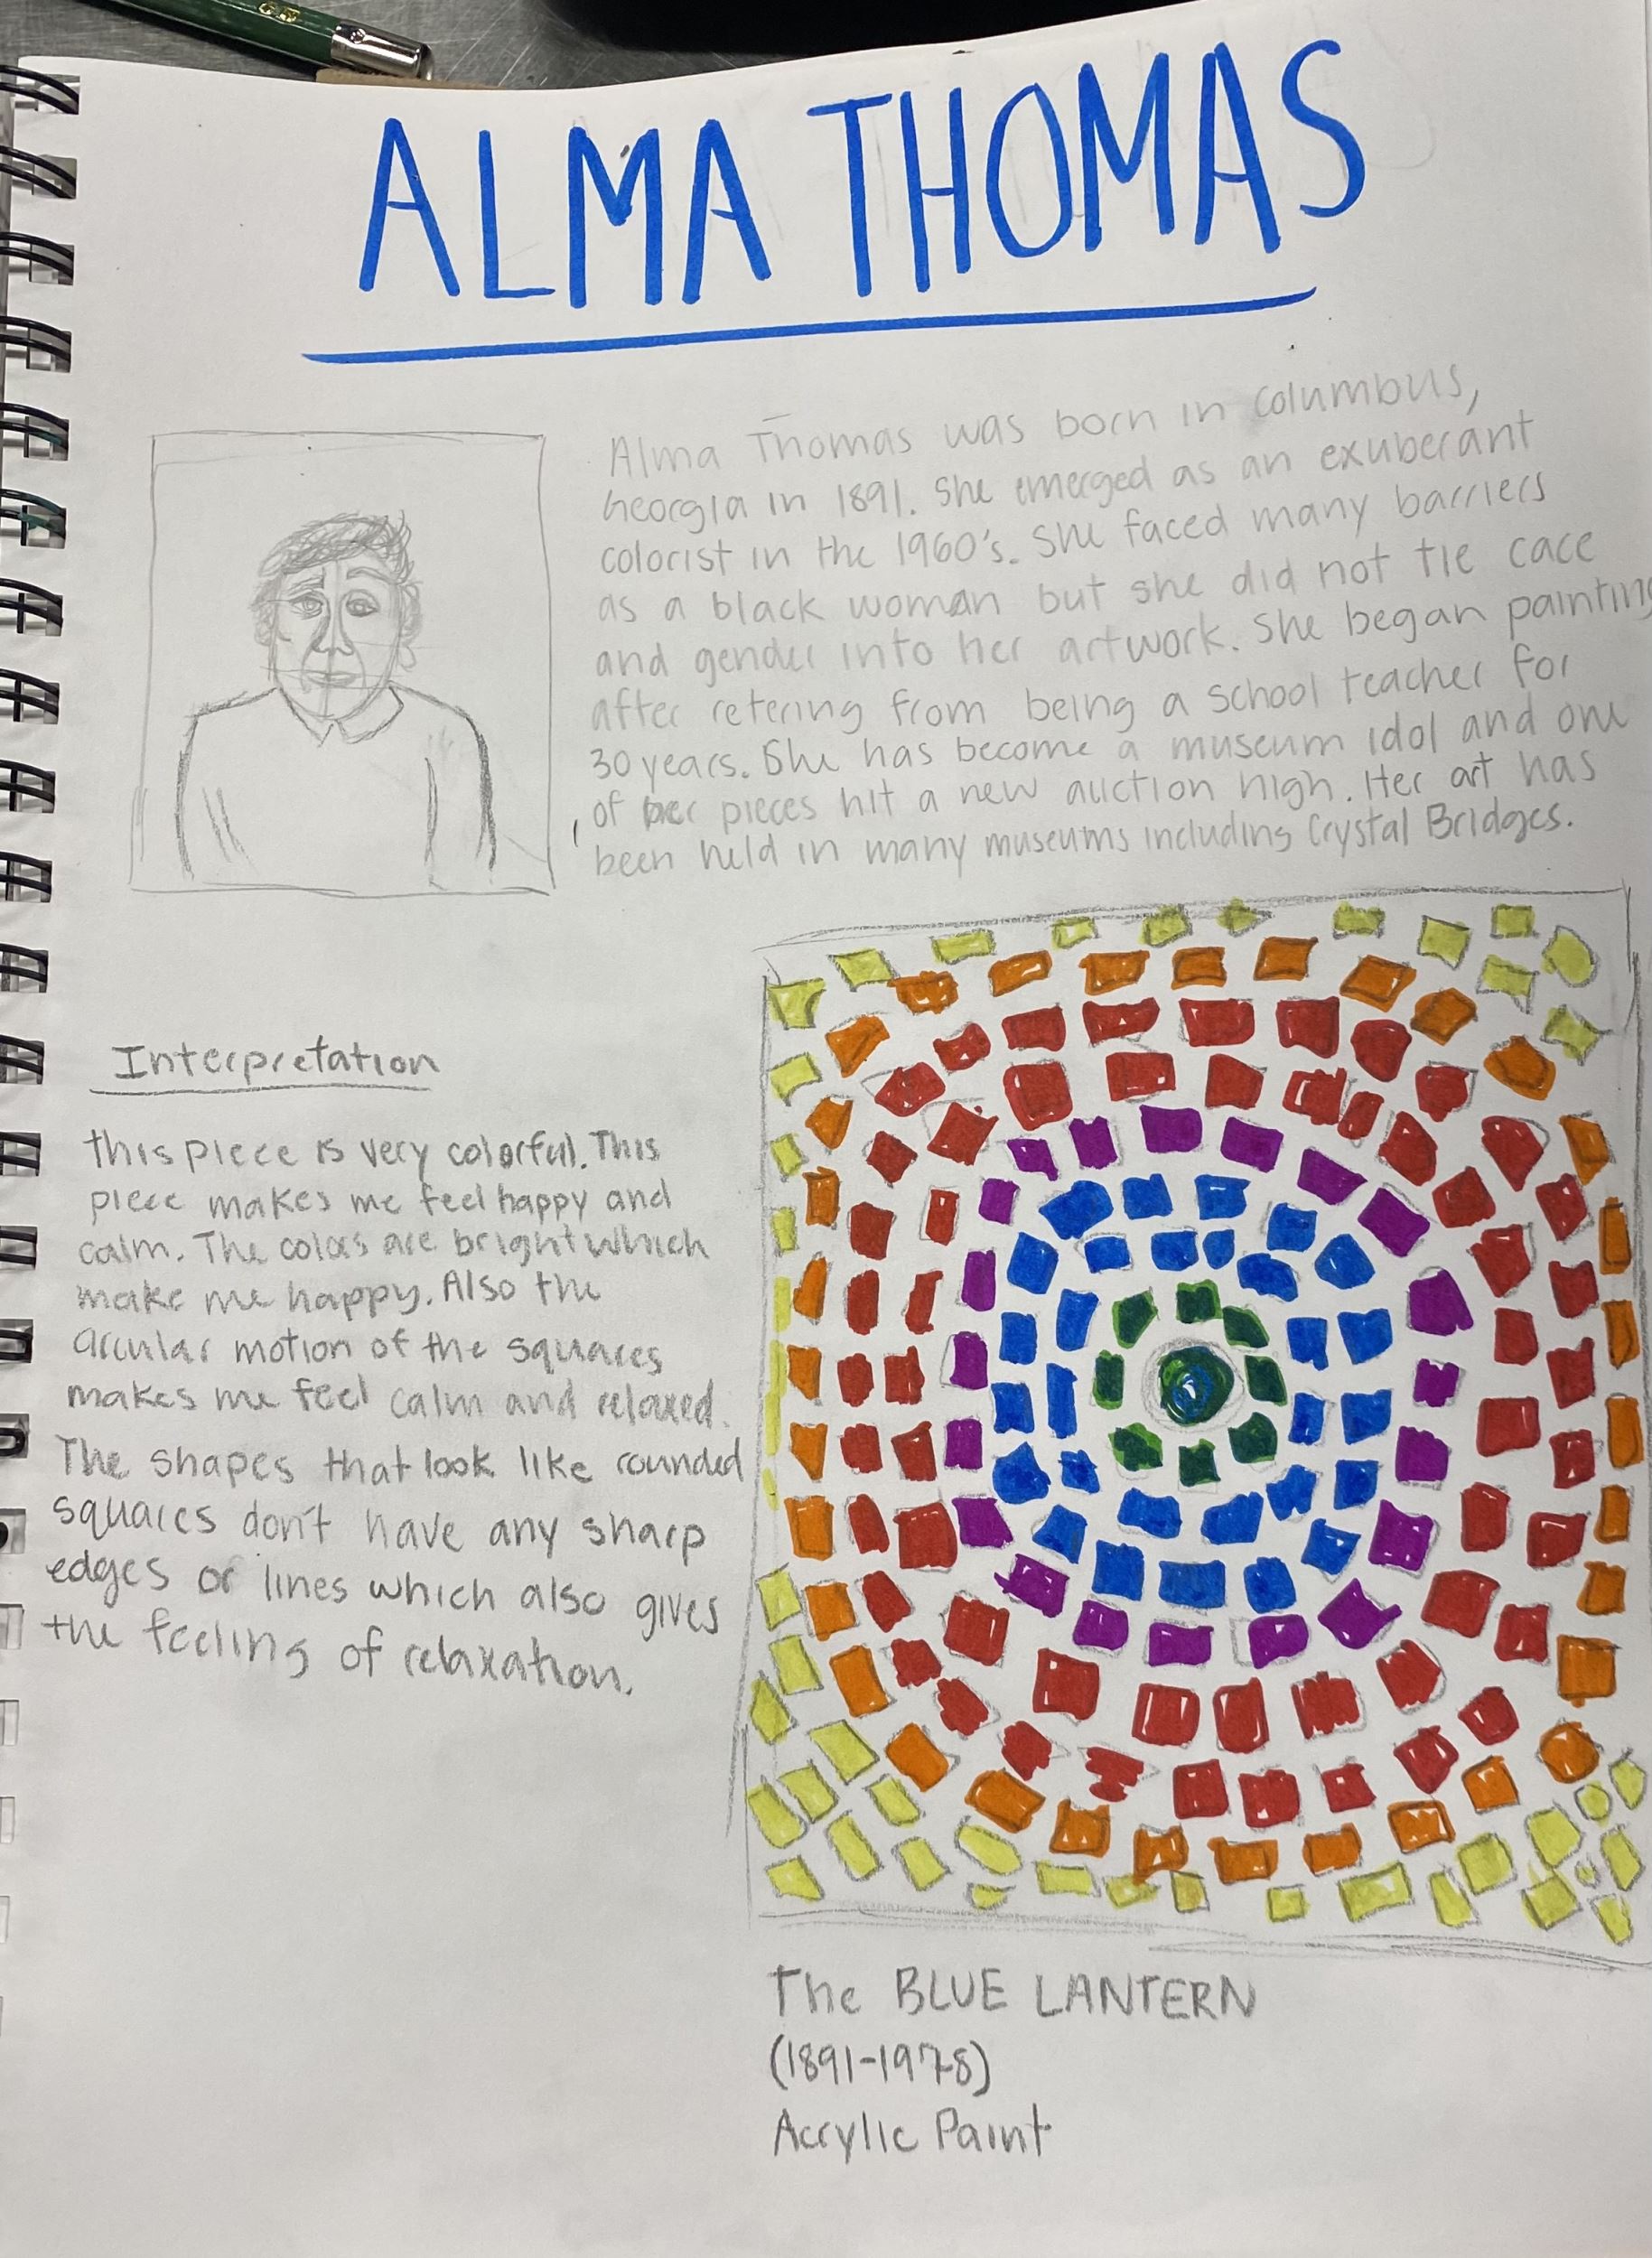 ALMA THOMAS
Alma Thomas was born in Columbus,
Georgia in 1891. She emerged as an exuberant
colorist in the 1960's. She faced many barriers
as a black woman but she did not tie race
and gender into her artwork. She began painting
after retering from being a school teacher for
30 years. She has become a museum idol and one
of her pieces hit a new auction high. Her art has
been held in many museums including Crystal Bridges.
Interpretation
this piece is very colorful. This
piece makes me feel happy and
calm. The colors are bright which
make me happy. Also the
circular motion of the squares
makes me feel calm and relaxed.
The shapes that look like rounded
squares don't have any sharp
edges or lines which also gives
the feeling of relaxation.
The BLUE LANTERN
(1891-1978)
Acrylic Paint